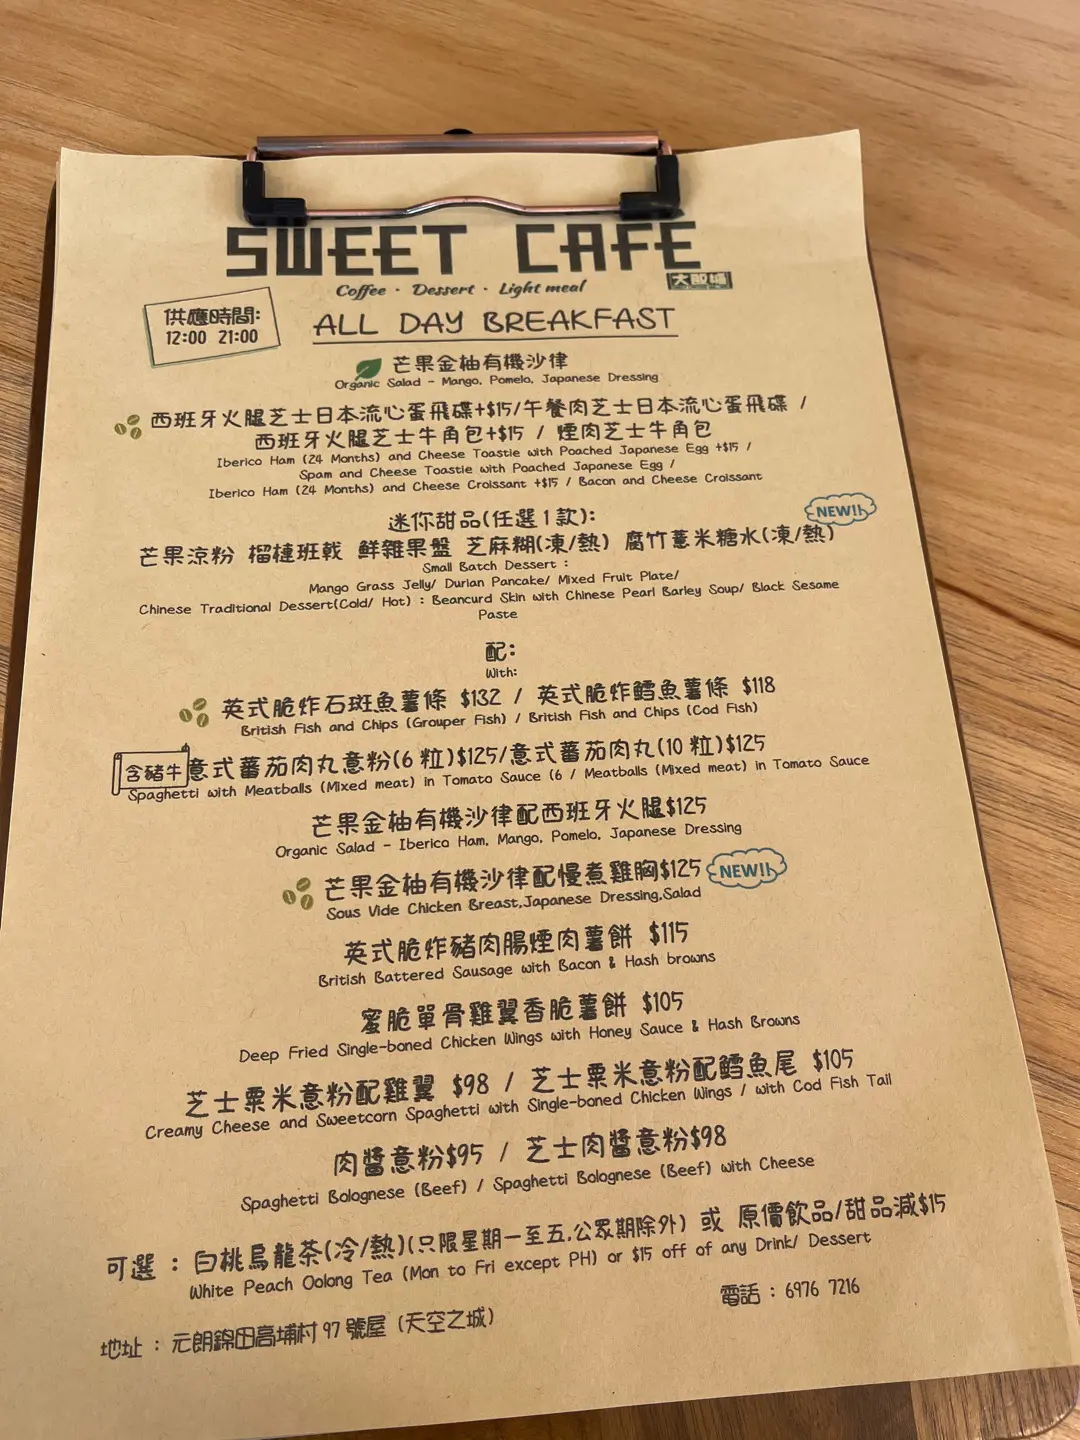 SWEET CAFE
Coffee · Dessert · Light meal
供應時間:
12:00 21:00
ALL DAY BREAKFAST
芒果金柚有機沙律
Organic Salad - Mango, Pomelo, Japanese Dressing
西班牙火腿芝士日本流心蛋飛碟+$15/午餐肉芝士日本流心蛋飛碟 /
西班牙火腿芝士牛角包+$15 / 煙肉芝士牛角包
Iberico Ham (24 Months) and Cheese Toastie with Poached Japanese Egg +$15 /
Spam and Cheese Toastie with Poached Japanese Egg /
Iberico Ham (24 Months) and Cheese Croissant +$15 / Bacon and Cheese Croissant
迷你甜品(任選1款):
NEW!!
芒果涼粉 榴槤班戟 鮮雜果盤 芝麻糊(凍/熱) 腐竹薏米糖水(凍/熱)
Small Batch Dessert :
Mango Grass Jelly/ Durian Pancake/ Mixed Fruit Plate/
Chinese Traditional Dessert(Cold/ Hot) : Beancurd Skin with Chinese Pearl Barley Soup/ Black Sesame
Paste
配:
With:
英式脆炸石斑魚薯條 $132 / 英式脆炸鱈魚薯條 $118
British Fish and Chips (Grouper Fish) / British Fish and Chips (Cod Fish)
含豬牛
意式蕃茄肉丸意粉(6粒)$125/意式蕃茄肉丸(10粒)$125
Spaghetti with Meatballs (Mixed meat) in Tomato Sauce (6 / Meatballs (Mixed meat) in Tomato Sauce
芒果金柚有機沙律配西班牙火腿$125
Organic Salad - Iberico Ham, Mango, Pomelo, Japanese Dressing
芒果金柚有機沙律配慢煮雞胸$125
NEW!!
Sous Vide Chicken Breast,Japanese Dressing,Salad
英式脆炸豬肉腸煙肉薯餅 $115
British Battered Sausage with Bacon & Hash browns
蜜脆單骨雞翼香脆薯餅 $105
Deep Fried Single-boned Chicken Wings with Honey Sauce & Hash Browns
芝士粟米意粉配雞翼 $98 / 芝士粟米意粉配鱈魚尾 $105
Creamy Cheese and Sweetcorn Spaghetti with Single-boned Chicken Wings / with Cod Fish Tail
肉醬意粉$95 / 芝士肉醬意粉$98
Spaghetti Bolognese (Beef) / Spaghetti Bolognese (Beef) with Cheese
可選 : 白桃烏龍茶(冷/熱)(只限星期一至五,公眾期除外) 或 原價飲品/甜品減$15
White Peach Oolong Tea (Mon to Fri except PH) or $15 off of any Drink/ Dessert
電話 : 6976 7216
地址 : 元朗錦田高埔村97號屋 (天空之城)